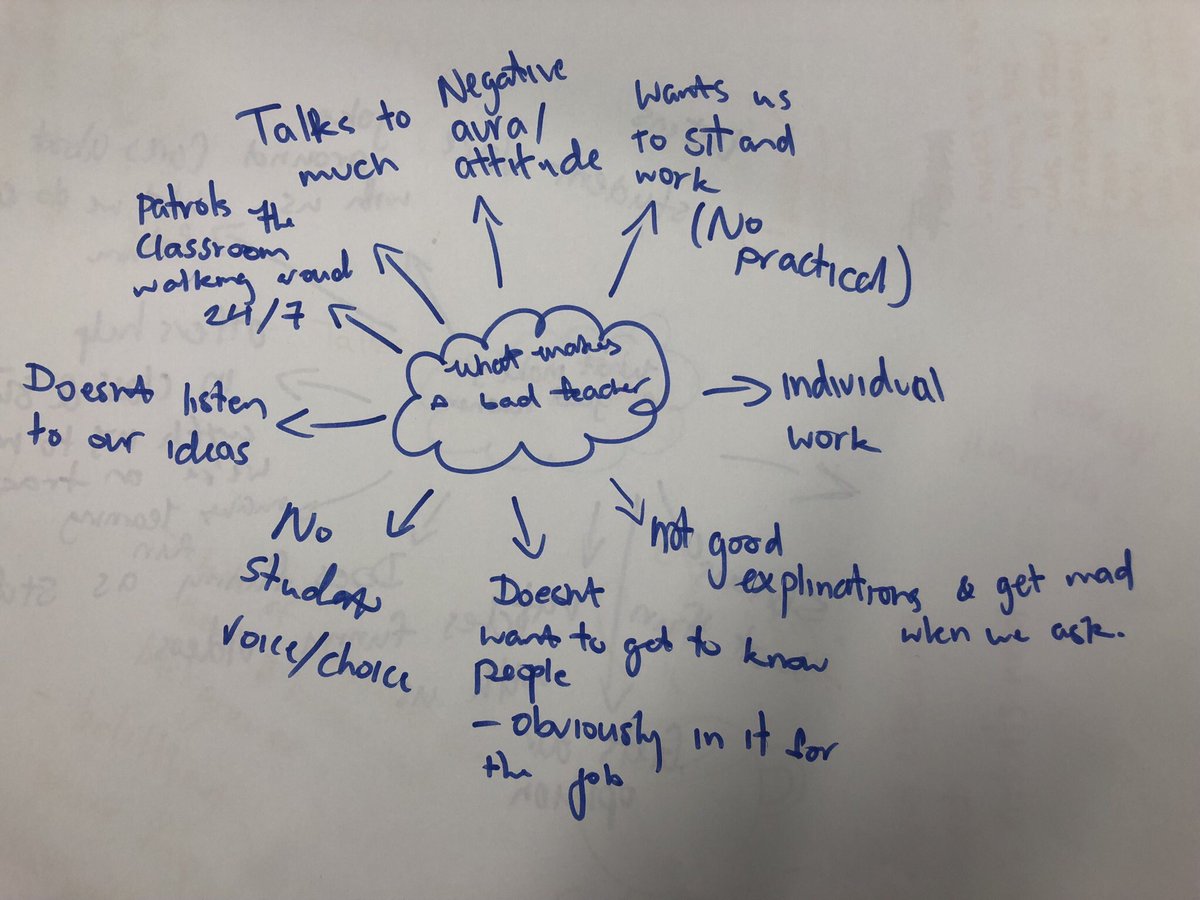 What makes
a bad teacher
Talks to
much
Negative
aura/
attitude
Wants us
to sit and
work
(No
practical)
individual
work
not good
explinations & get mad
when we ask.
Doesnt
want to get to know
people
- Obviously in it for
the job
No
student
voice/choice
Doesnt listen
to our ideas
patrols the
classroom
walking aroud
24/7